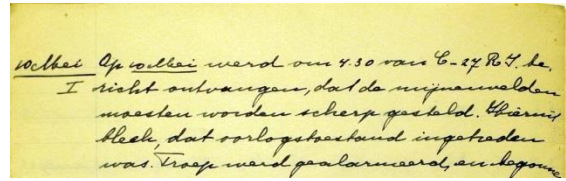 10 Mei Op 10 Mei werd om 4.30 van C-27 R.I. be,
I richt ontvangen, dat de mijnenvelden
moesten worden scherp gesteld. Hieruit
bleek, dat oorlogstoestand ingetreden
was. Troep werd gealarmeerd, en begonne